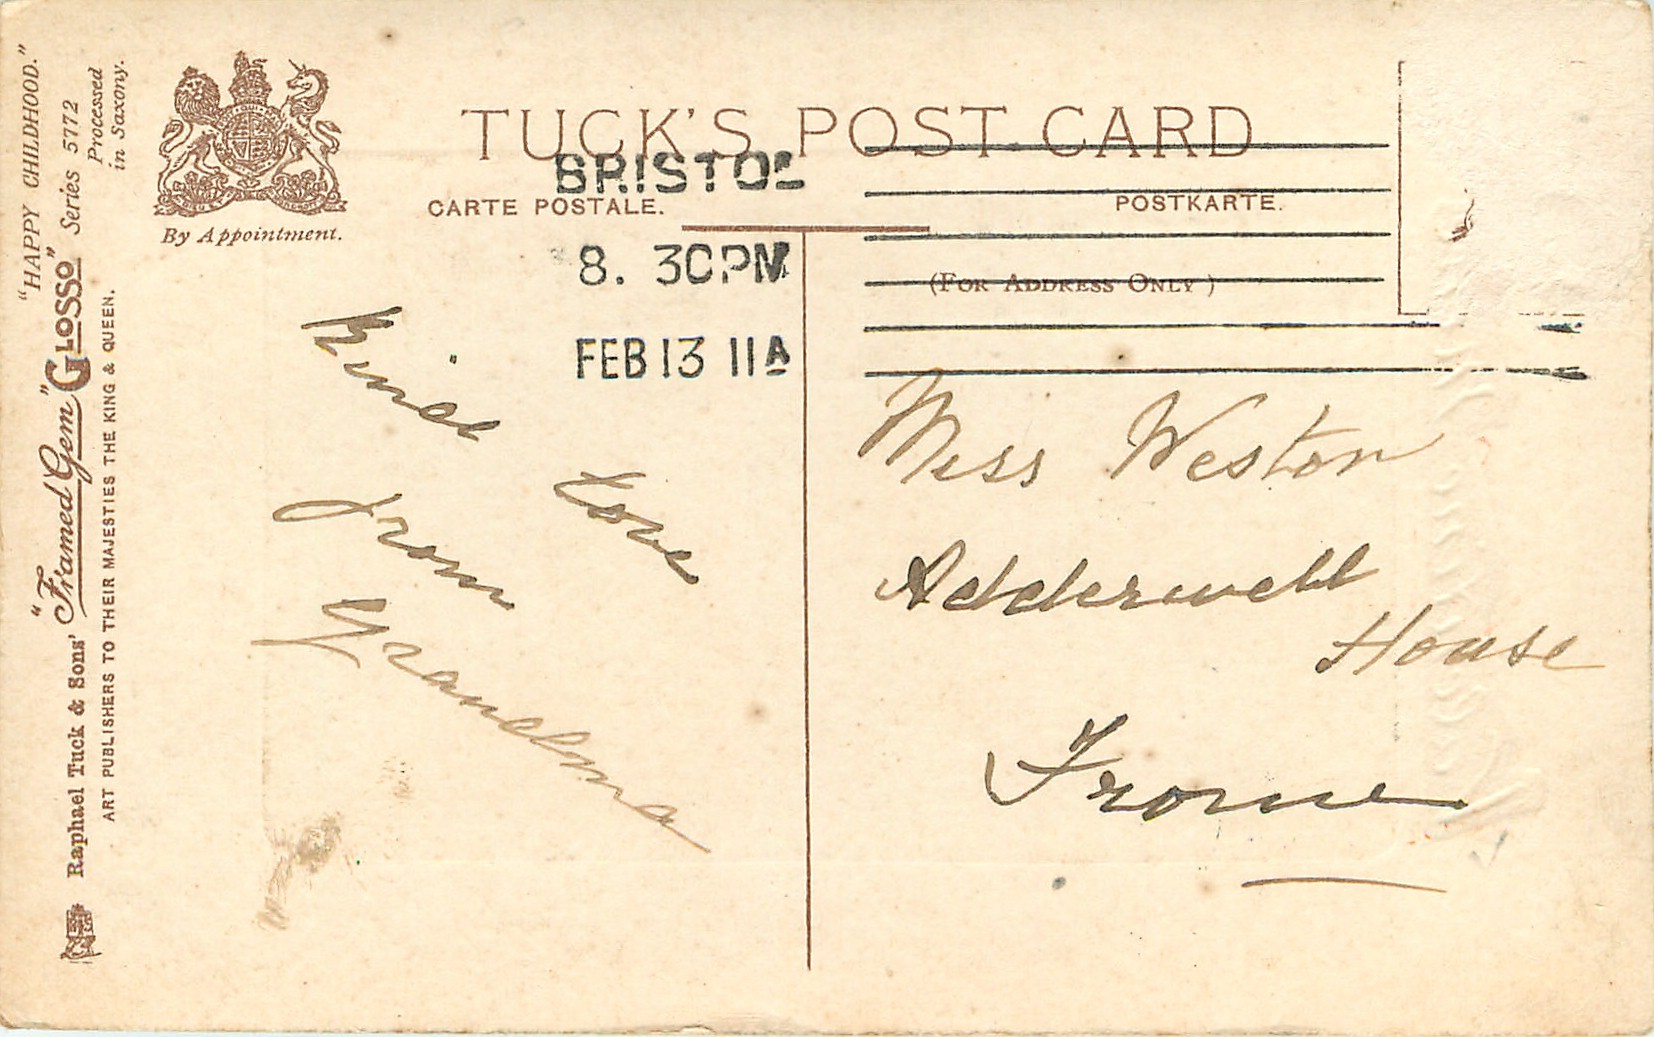 "HAPPY CHILDHOOD."
"Framed Gem" "GLOSSO" Series 5772
Processed
in Saxony.
Raphael Tuck & Sons'
ART PUBLISHERS TO THEIR MAJESTIES THE KING & QUEEN.
By Appointment.
TUCK'S POST CARD
CARTE POSTALE.
POSTKARTE.
(FOR ADDRESS ONLY)
BRISTOL
8. 30PM
FEB 13 11A
Kind
Love
from
Grandma
Miss Weston
Adderwell
House
Frome